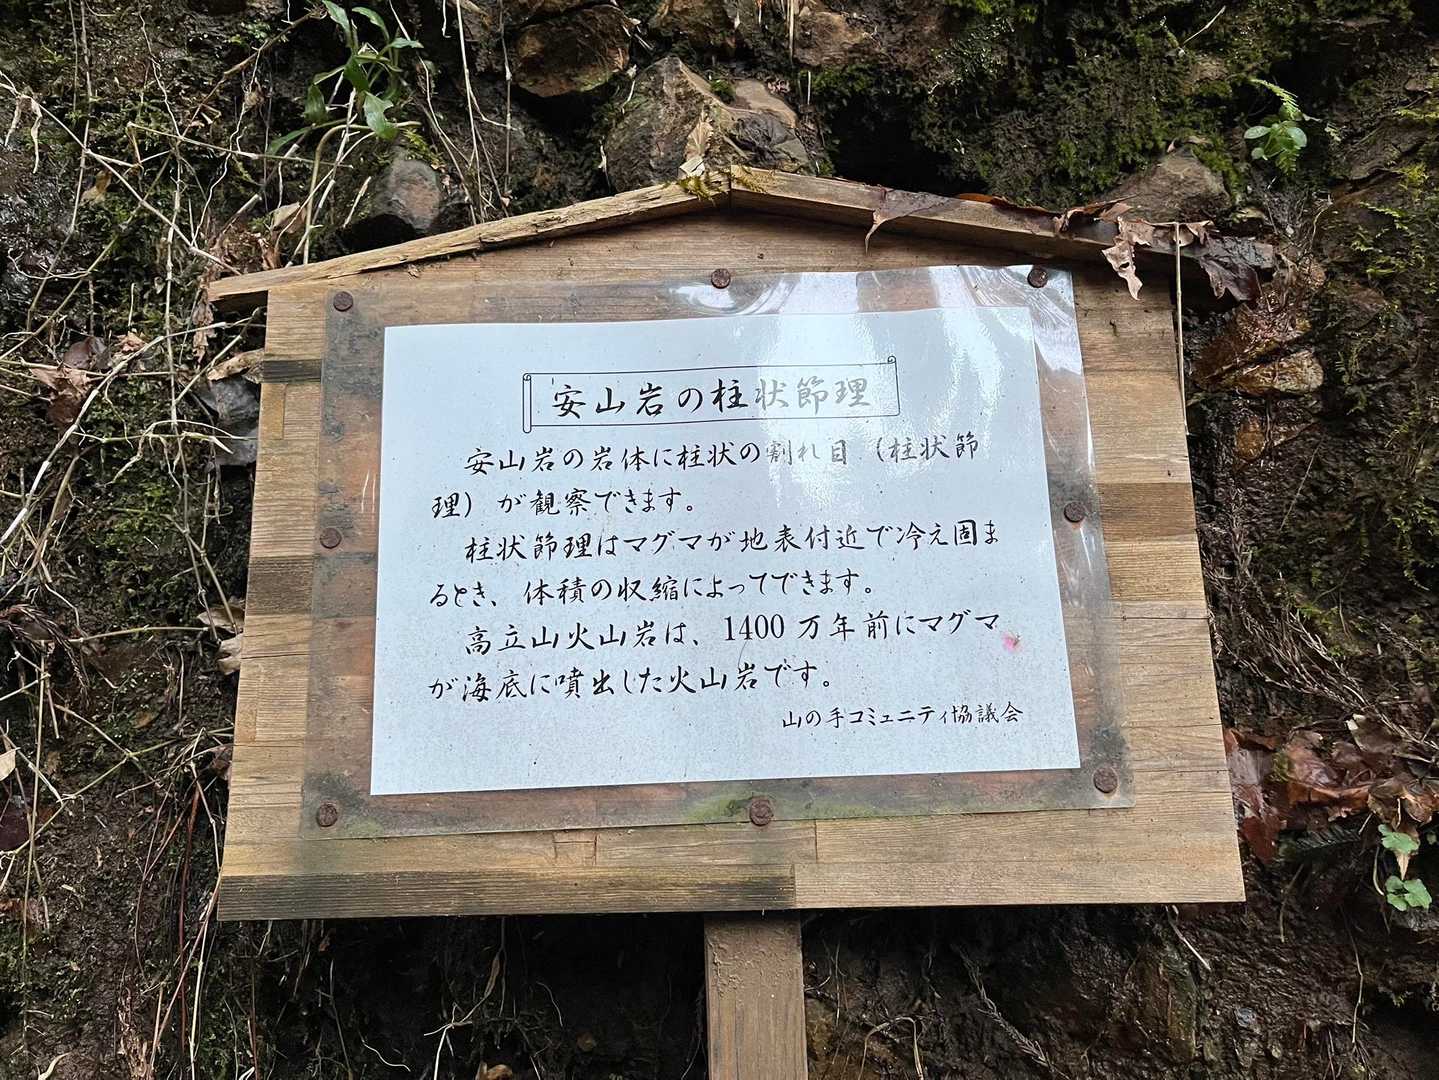 安山岩の柱状節理
安山岩の岩体に柱状の割れ目（柱状節
理）が観察できます。
柱状節理はマグマが地表付近で冷え固ま
るとき、体積の収縮によってできます。
高立山火山岩は、1400万年前にマグマ
が海底に噴出した火山岩です。
山の手コミュニティ協議会